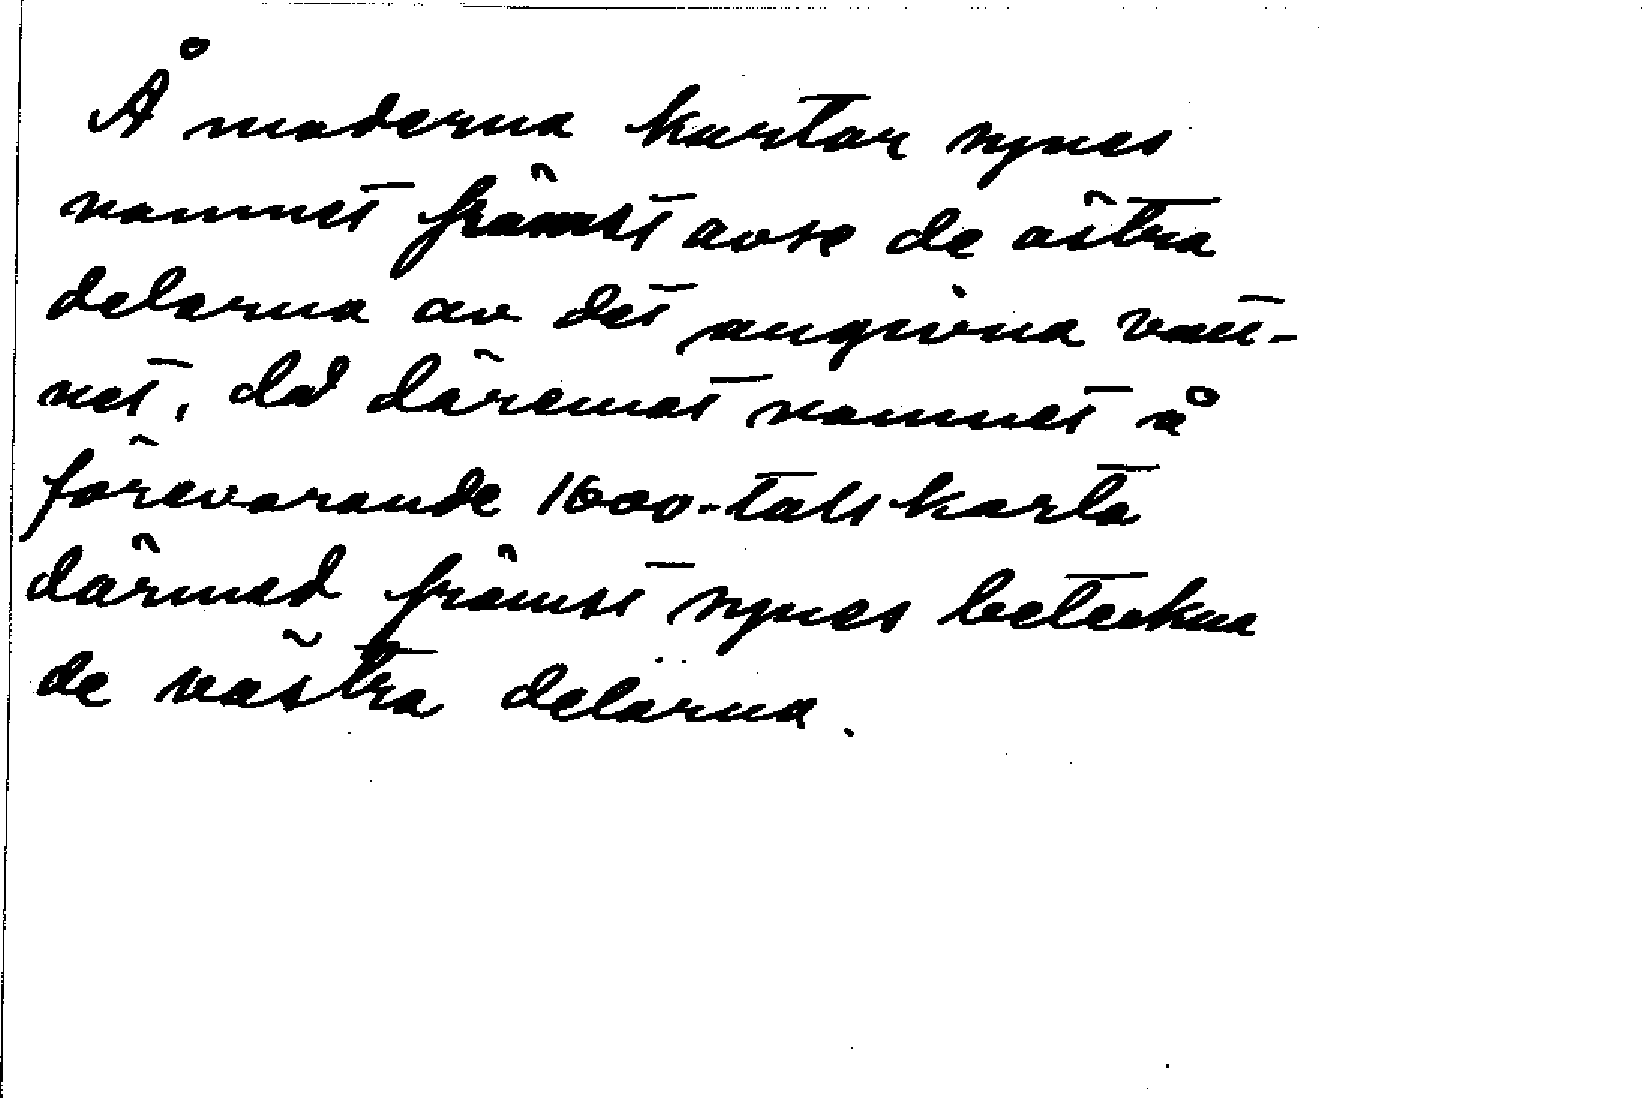 Å moderna kartor synes
namnet främst avse de östra
delarna av det angivna vatt-
net, då däremot namnet å
förevarande 1600-talskarta
därmed främst synes beteckna
de västra delarna.